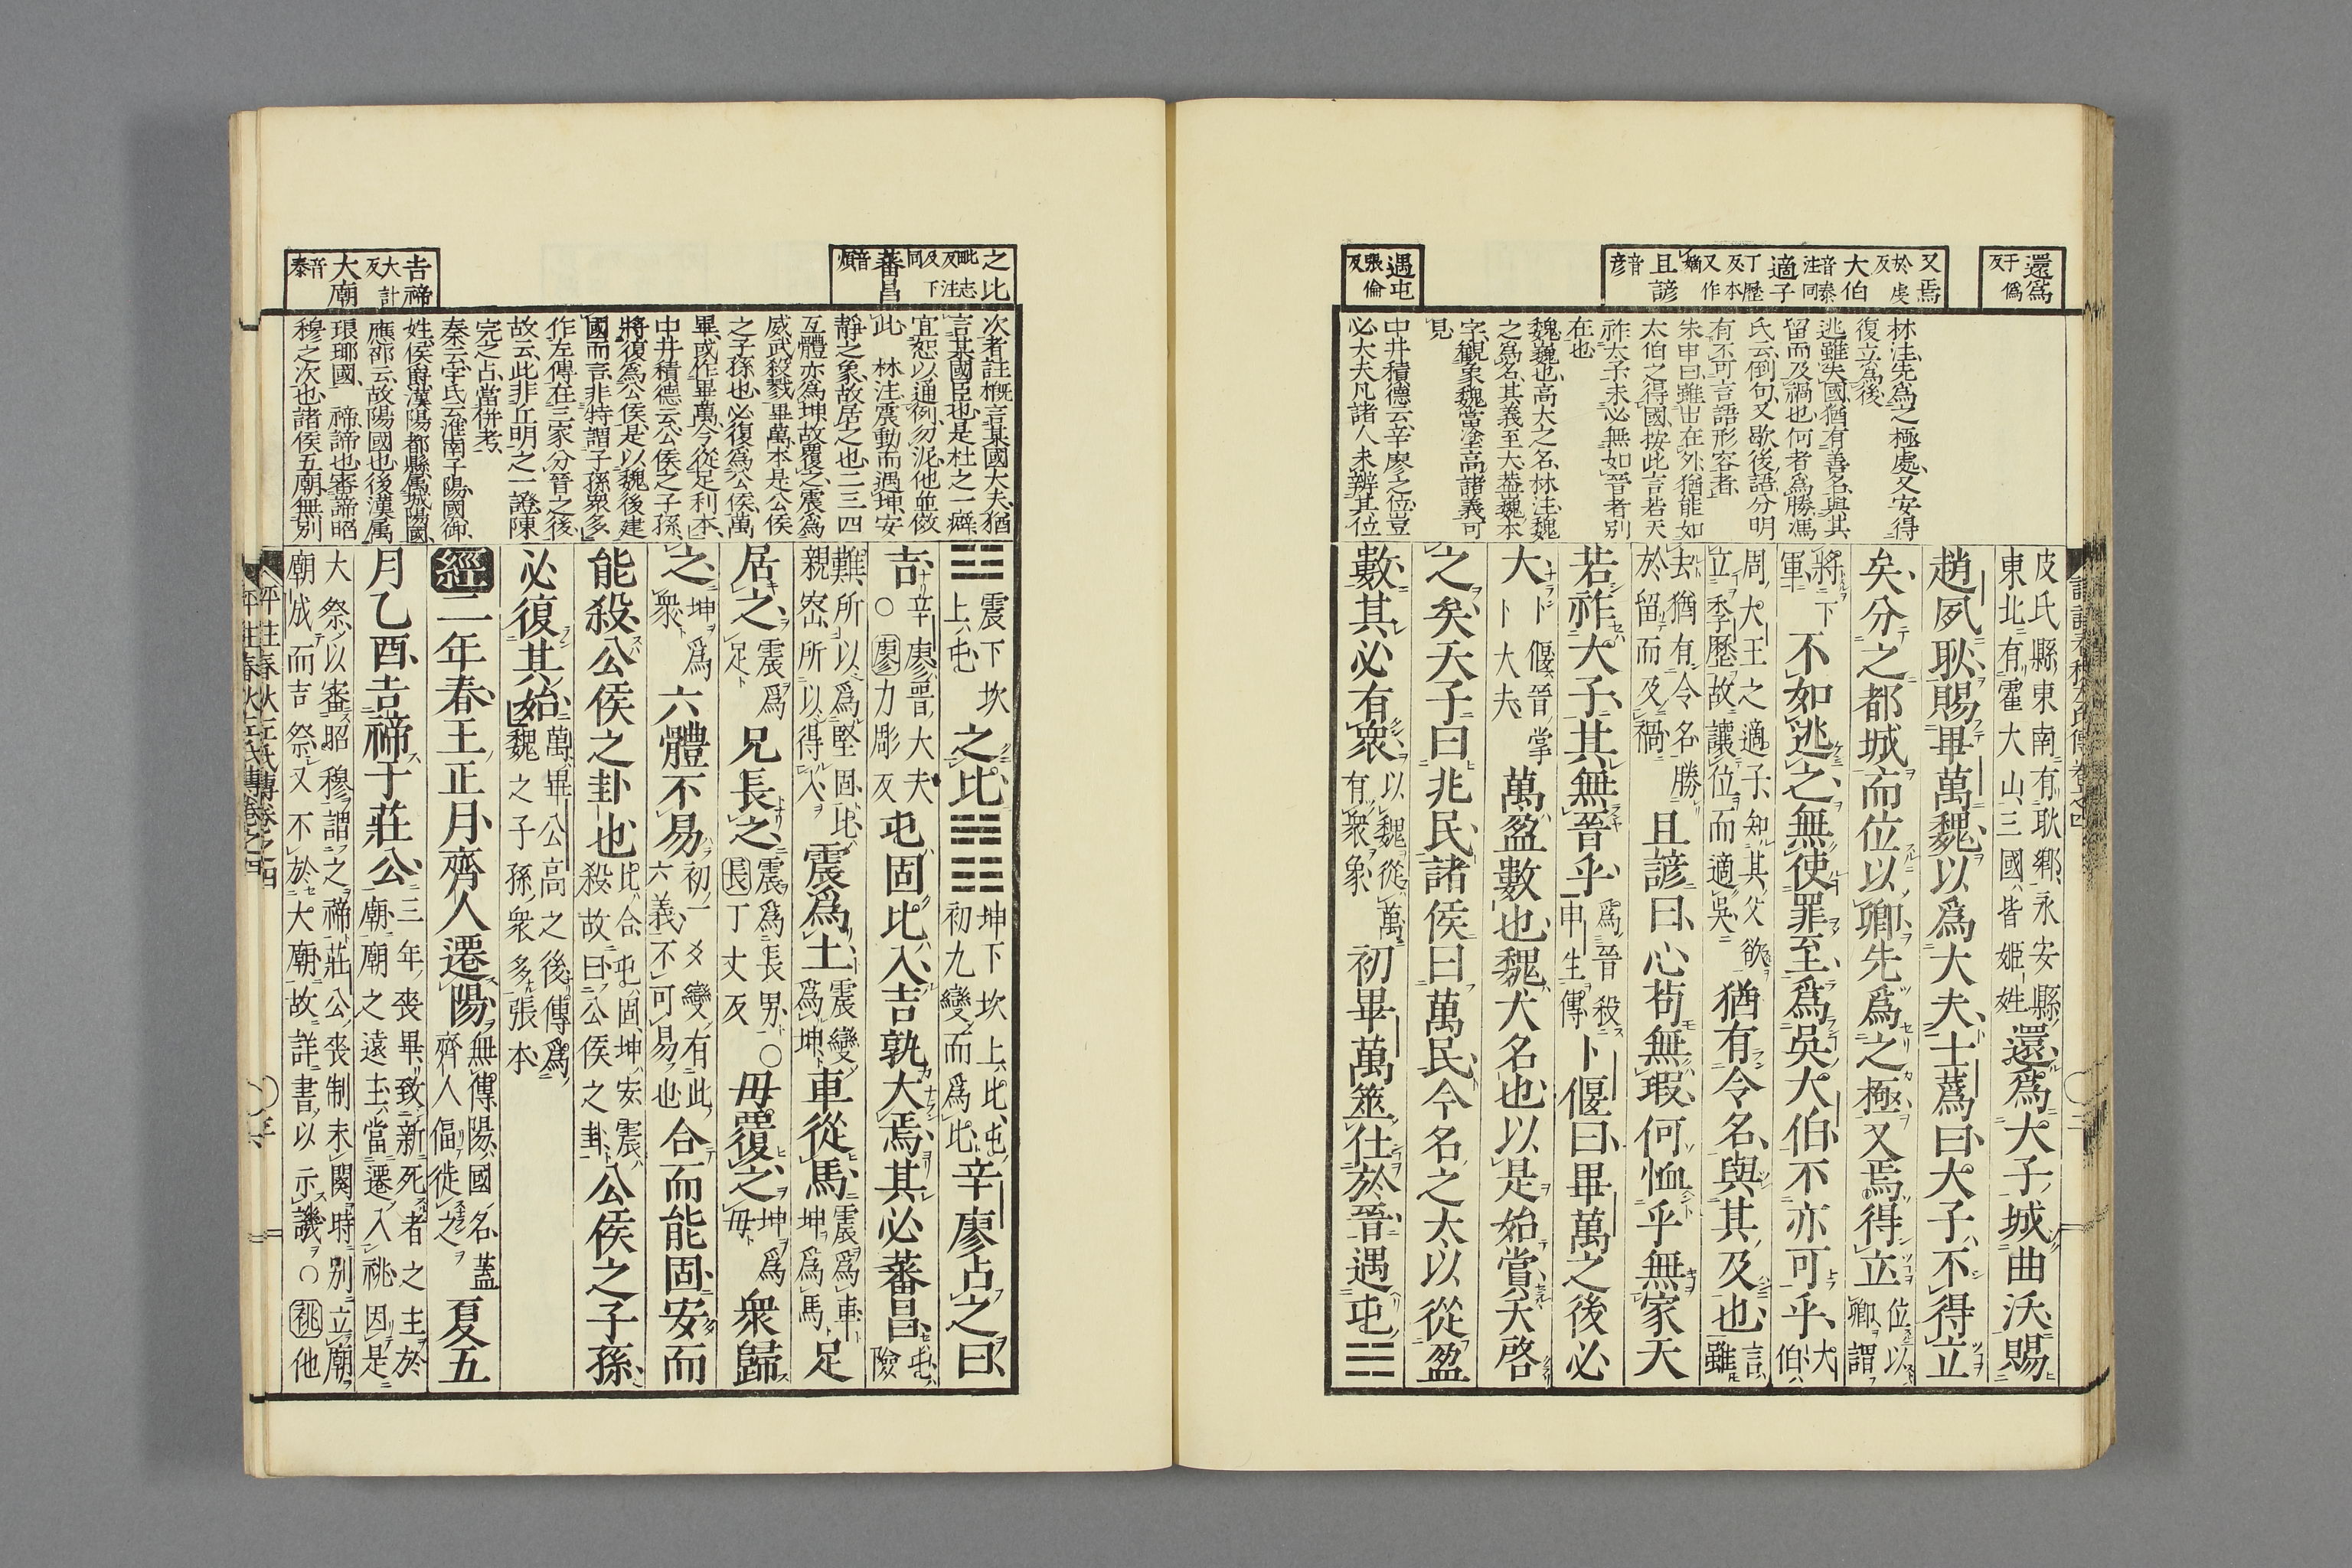 還爲
于僞
反
又焉
於虔
反
大伯
音泰
注同
適子
丁歷
反本
又作
嫡
且諺
音
彦
遇屯
張倫
反
林注先爲之極處又安得
復立爲後
逃雖失國猶有善名與其
留而及禍也何者爲勝馮
氏云倒句又歇後語分明
有不可言語形容者
朱申曰雖出在外猶能如
大伯之得國按此言若天
祚太子未必無如晉者別
在也
魏巍也高大之名林注魏
之爲名其義至大葢巍本
字觀象魏當塗高諸義可
見
中井積德云辛廖之位豈
必大夫凡諸人未辨其位
皮氏縣東南有耿鄉永安縣
東北有霍大山三國皆姬姓
還爲大子城曲沃賜
趙夙耿賜畢萬魏以爲大夫士蔿曰大子不得立
矣分之都城而位以卿先爲之極又焉得立
位以
卿謂
將下
軍
不如逃之無使罪至爲吳大伯不亦可乎
大
伯
周大王之適子知其父欲
立季歷故讓位而適吳
猶有令名與其及也
言
雖
去猶有令名勝
於留而及禍
且諺曰心苟無瑕何恤乎無家天
若祚大子其無晉乎
爲晉殺
申生傳
卜偃曰畢萬之後必
大
卜偃晉掌
卜大夫
萬盈數也魏大名也以是始賞天啓
之矣天子曰兆民諸侯曰萬民今名之大以從盈
數其必有衆
以魏從萬
有衆象
初畢萬筮仕於晉遇屯䷂
之比
毗志
反注
及下
同
蕃昌
音
煩
吉禘
大計
反
大廟
音
泰
次者註槪言某國大夫猶
言某國臣也是杜之一癖
宜恕以通例勿泥他並倣
此 林注震動而遇坤安
靜之象故居之也二三四
互體亦爲坤故覆之震爲
威武殺戮 畢萬本是公侯
之子孫也必復爲公侯萬
畢或作畢萬今從足利本
中井積德云公侯之子孫
將復爲公侯是以魏後建
國而言非特謂子孫衆多
作左傳在三家分晉之後
故云此非丘明之一證陳
完之占當併考
秦云宇氏云淮南子陽國御
姓侯爵漢陽都縣屬城陽國
應邵云故陽國也後漢屬
琅琊國 禘諦也審諦昭
穆之次也諸侯五廟無別
震下坎
上屯
之比䷇
坤下坎上比屯
初九變而爲比
辛廖占之曰
吉
辛廖晉大夫
○廖力彫反
屯固比入吉孰大焉其必蕃昌
屯
險
難所以爲堅固比
親密所以得入
震爲土
震變
爲坤
車從馬
震爲車
坤爲馬
足
居之
震爲
足
兄長之
震爲長男○
長丁丈反
母覆之
坤爲
母
衆歸
之
坤爲
衆
六體不易
初一爻變有此
六義不可易也
合而能固安而
能殺公侯之卦也
比合屯固坤安震
殺故曰公侯之卦
公侯之子孫
必復其始
萬畢公高之後傳爲
魏之子孫衆多張本
經二年春王正月齊人遷陽
無傳陽國名蓋
齊人偪徙之
夏五
月乙酉吉禘于莊公
三年喪畢致新死者之主於
廟廟之遠主當遷入祧因是
大祭以審昭穆謂之禘莊公喪制未闋時別立廟
廟成而吉祭又不於大廟故詳書以示譏○祧他
評註春秋左氏傳卷之四